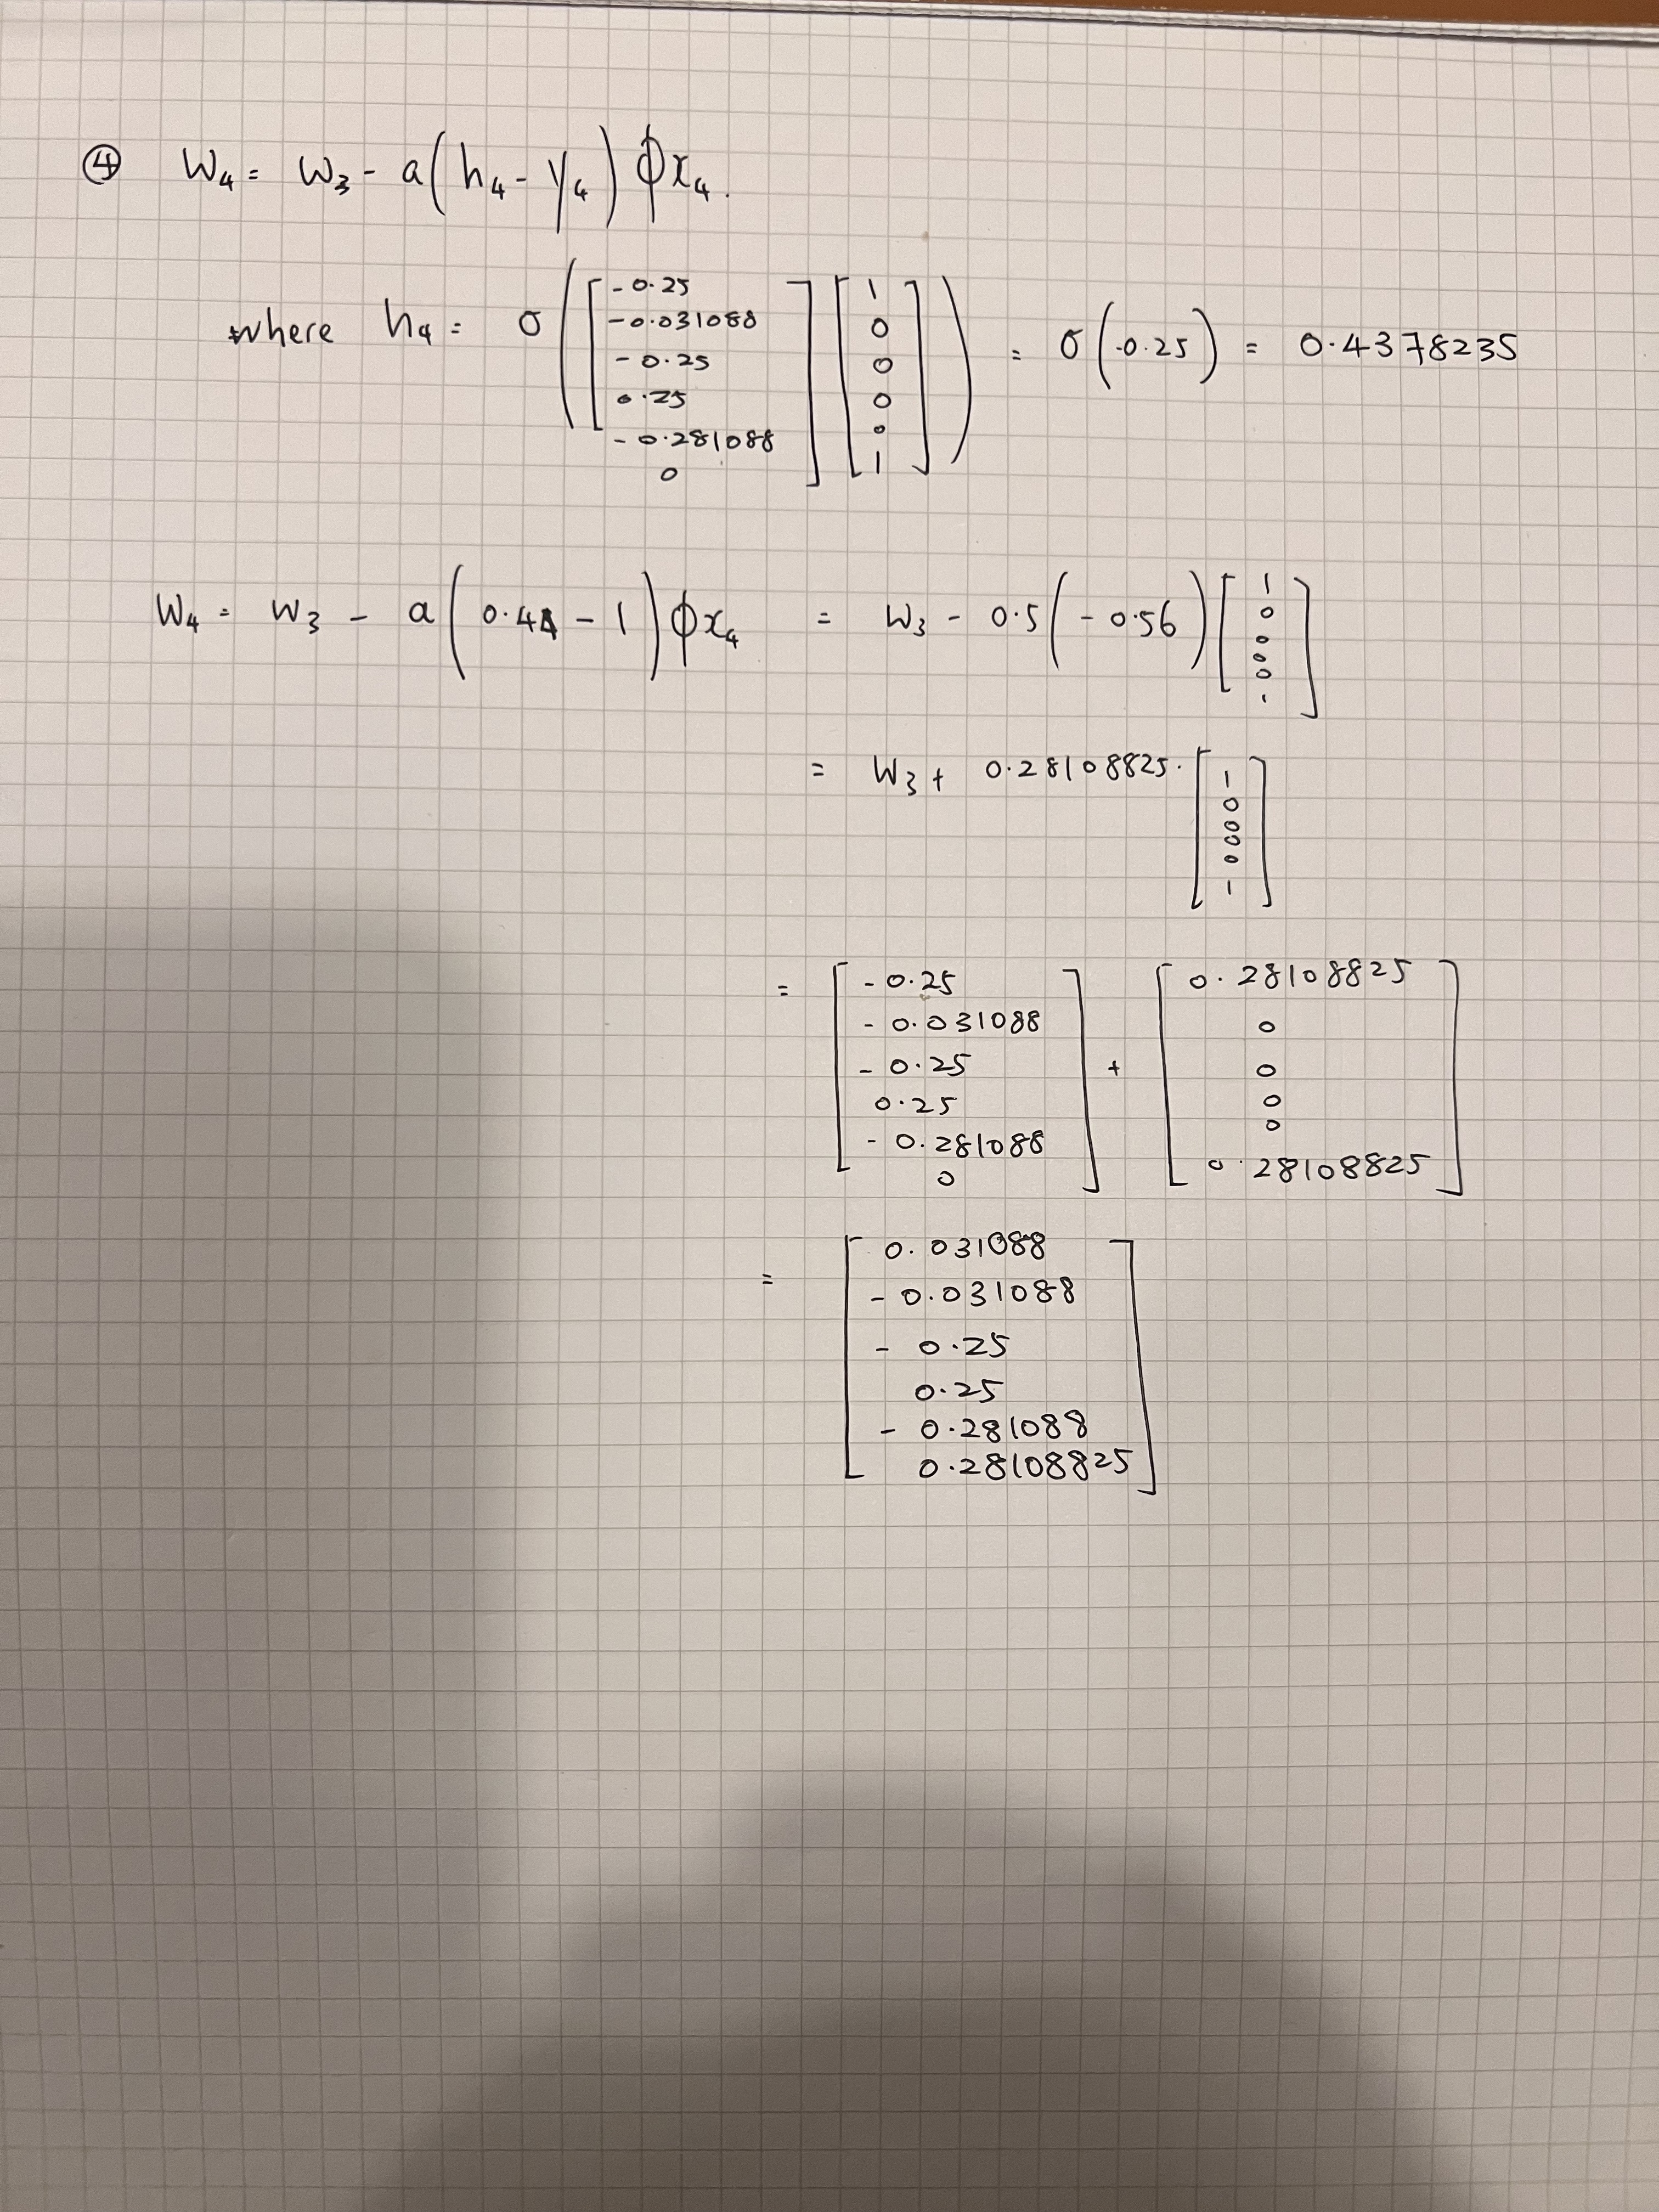 ④ W₄ = W₃ - a(h₄ - y₄) ϕx₄.
where h₄ = σ([-0.25 -0.031088 -0.25 0.25 -0.281088 0] [1 0 0 0 0 1]) = σ(-0.25) = 0.4378235
W₄ = W₃ - a(0.44 - 1) ϕx₄ = W₃ - 0.5(-0.56) [1 0 0 0 0 1]
= W₃ + 0.28108825. [1 0 0 0 0 1]
= [-0.25 -0.031088 -0.25 0.25 -0.281088 0] + [0.28108825 0 0 0 0 0.28108825]
= [0.031088 -0.031088 -0.25 0.25 -0.281088 0.28108825]